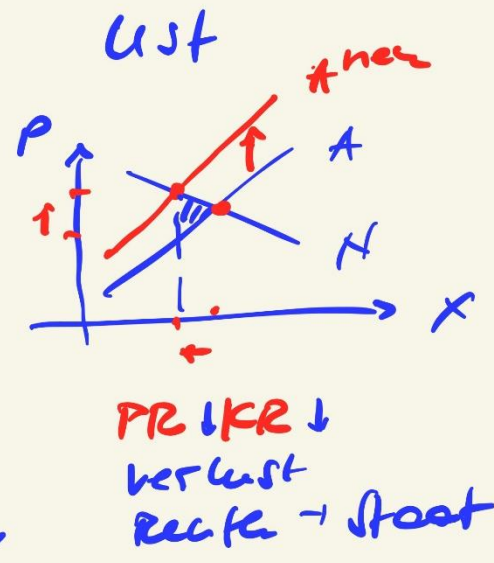 USt
A neu
P
A
N
X
PR ↓ KR ↓
Verlust
Renten → Staat